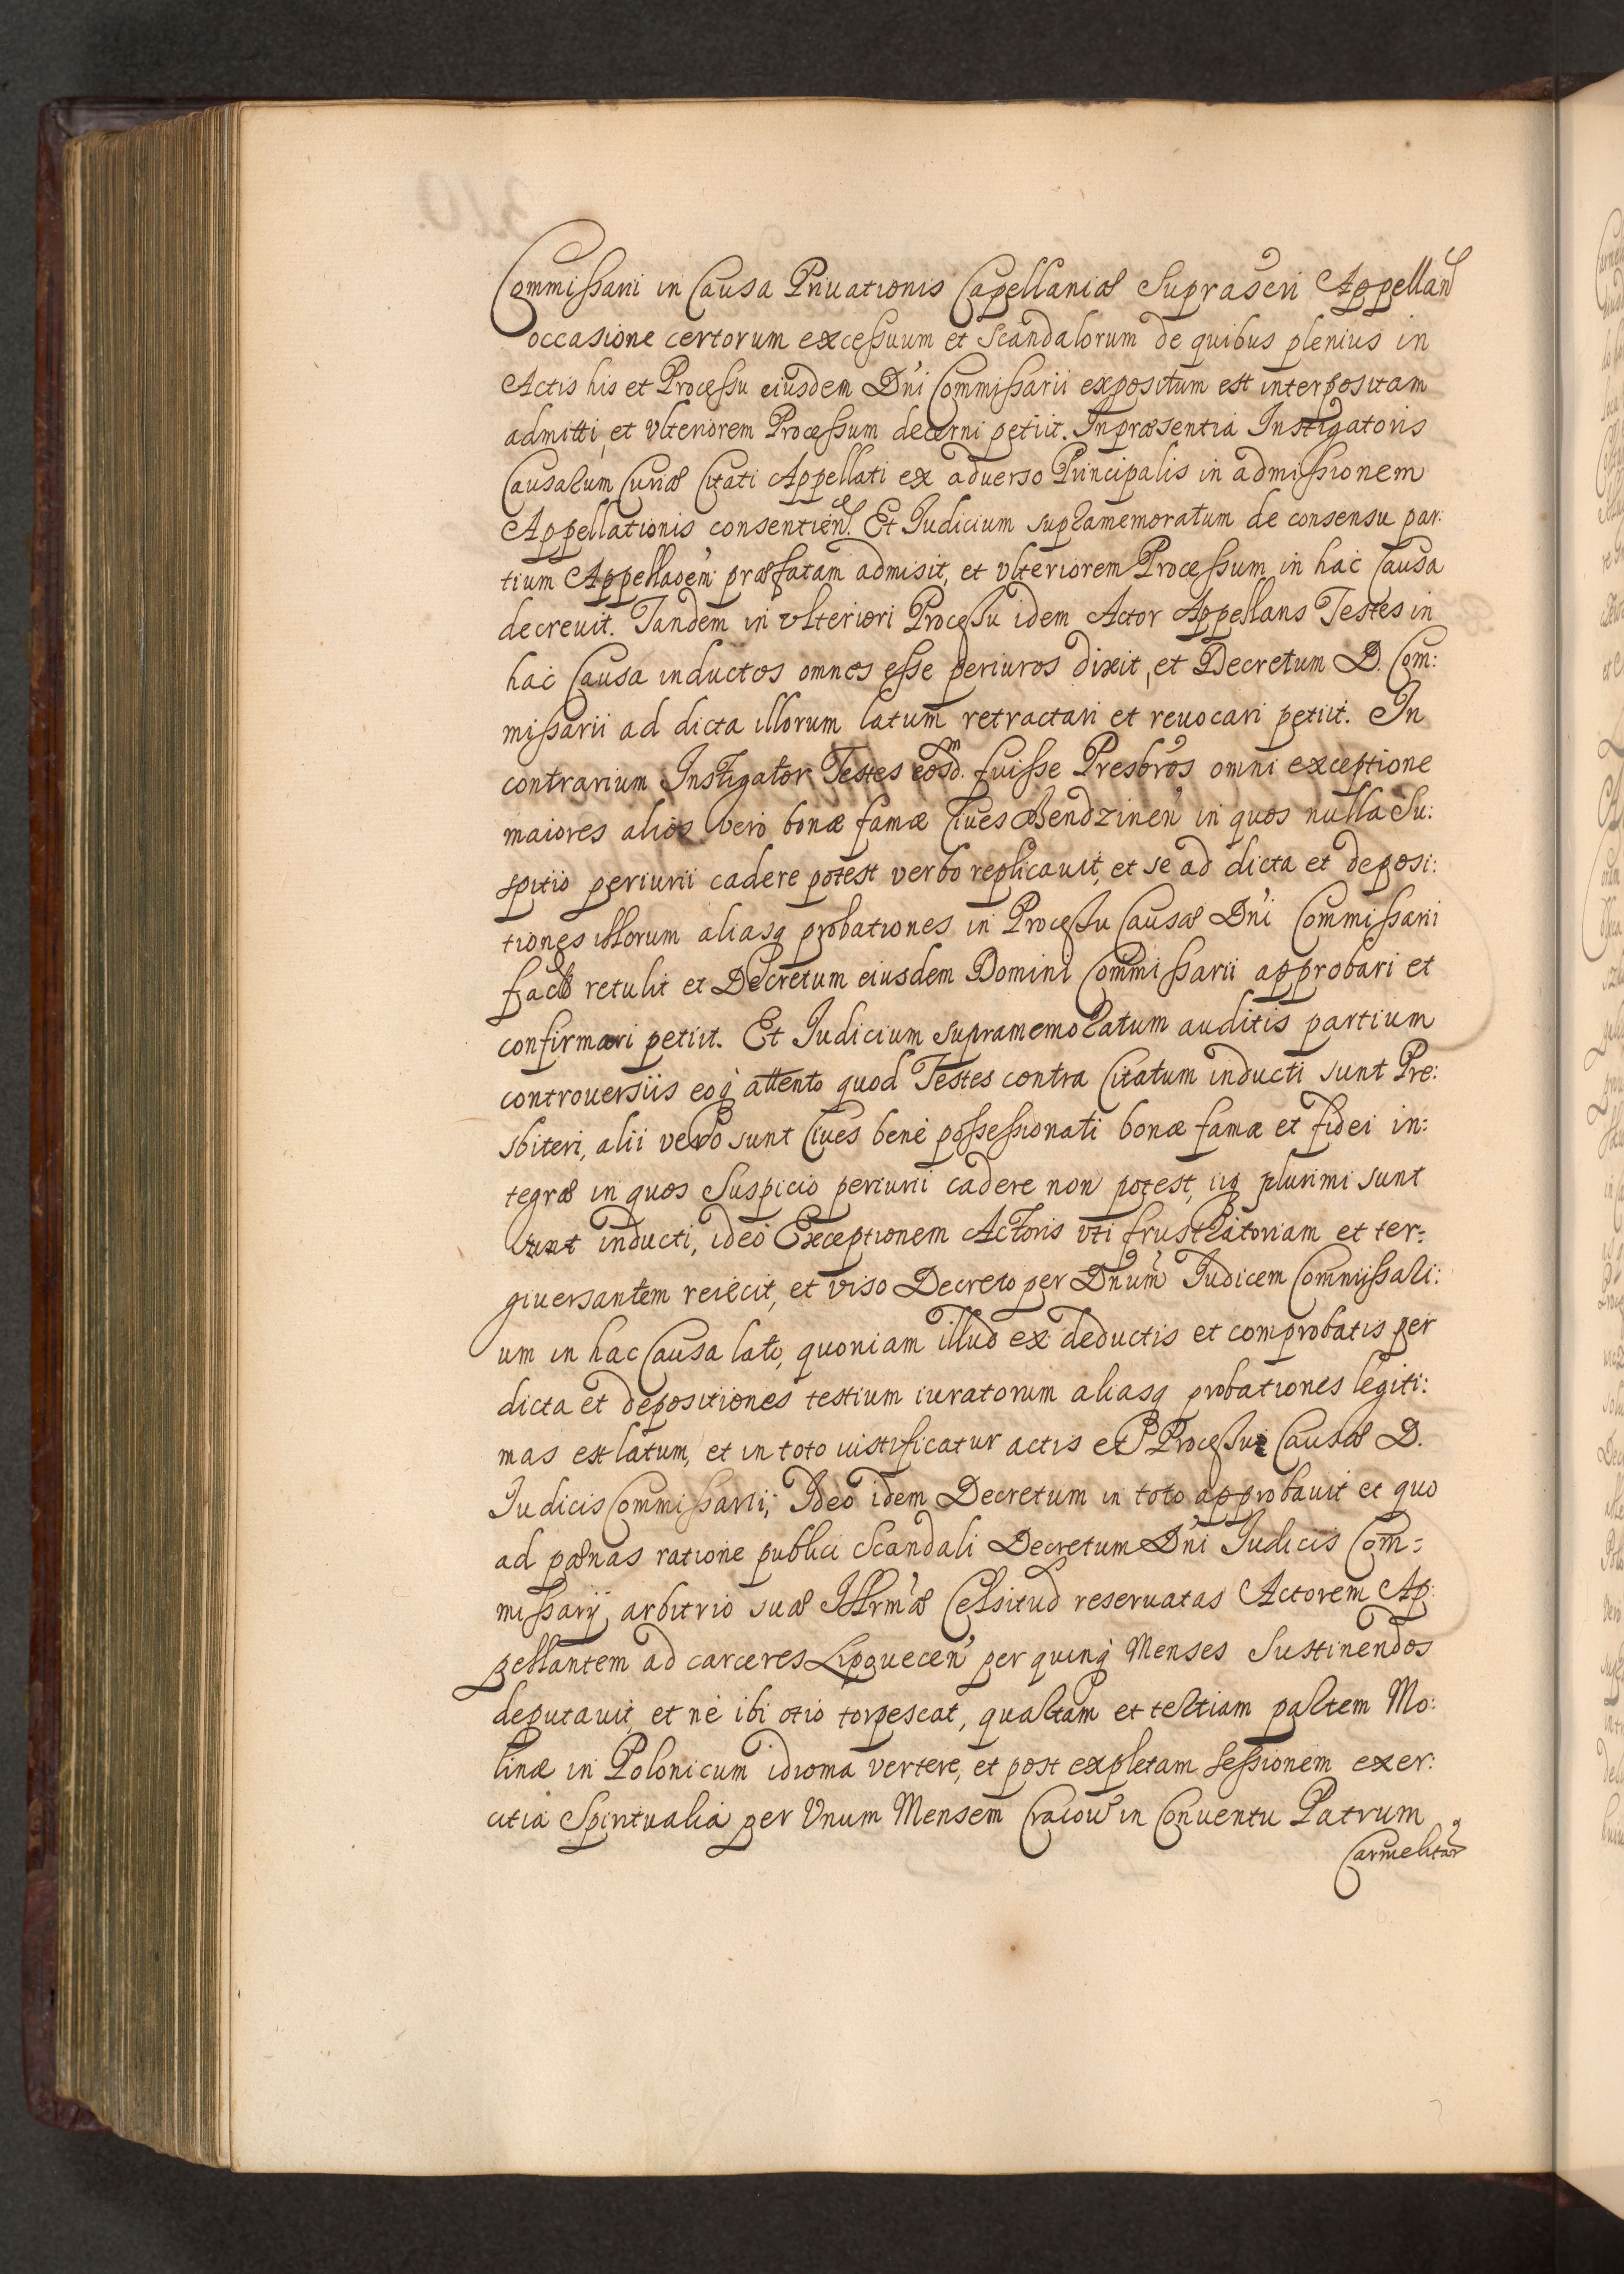 Commissarii in Causa Priuationis Capellaniæ Supraseri Appellan
occasione certorum excessuum et Scandalorum de quibus plenius in
Actis his et Processu eiusdem Dñi Commissarii expositum est interpositam
admitti, et vlteriorem Processum decerni petiit. In præsentia Instigatoris
Causarum Curiæ Citati Appellati ex aduerso Principalis in admissionem
Appellationis consentien. Et Iudicium supramemoratum de consensu par:
tium Appellaoem præfatam admisit, et vlteriorem Processum in hac Causa
decreuit. Tandem in vlteriori Processu idem Actor Appellans Testes in
hac Causa inductos omnes esse periuros dixit, et Decretum D. Com:
missarii ad dicta illorum latum retractari et reuocari petiit. In
contrarium Instigator Testes eosdm. fuisse Presbros omni exceptione
maiores alios vero bonæ famæ Ciues Bendzinen in quos nulla Su:
spitio periurii cadere potest verbo replicauit, et se ad dicta et deposi:
tiones illorum aliasq probationes in Processu Causæ Dñi Commissarii
factas retulit et Decretum eiusdem Domini Commissarii approbari et
confirmari petiit. Et Iudicium supramemoratum auditis partium
controuersiis eoq attento quod Testes contra Citatum inducti sunt Pre:
sbiteri, alii vero sunt Ciues bene possessionati bonæ famæ et fidei in:
tegræ in quos Suspicio periurii cadere non potest, iiq plurimi sunt
sunt inducti, ideo Exceptionem Actoris vti frustratoriam et ter:
giuersantem reiecit, et viso Decreto per Dnum Iudicem Commissari:
um in hac Causa lato, quoniam illud ex deductis et comprobatis per
dicta et depositiones testium iuratorum aliasq probationes legiti:
mas est latum, et in toto iustificatur actis et Processu Causæ D.
Iudicis Commissarii; Ideo idem Decretum in toto approbauit et quo
ad pœnas ratione publici Scandali Decretum Dñi Iudicis Com:
missarij arbitrio suæ Illrmæ Celsitud reseruatas Actorem Ap:
pellantem ad carceres Lipouecen per quinq Menses Sustinendos
deputauit, et ne ibi otio torpescat, quartam et tertiam partem Mo:
linæ in Polonicum idioma vertere, et post expletam Sessionem exer:
citia Spiritualia per Vnum Mensem Cracou in Conuentu Patrum
Carmelitar